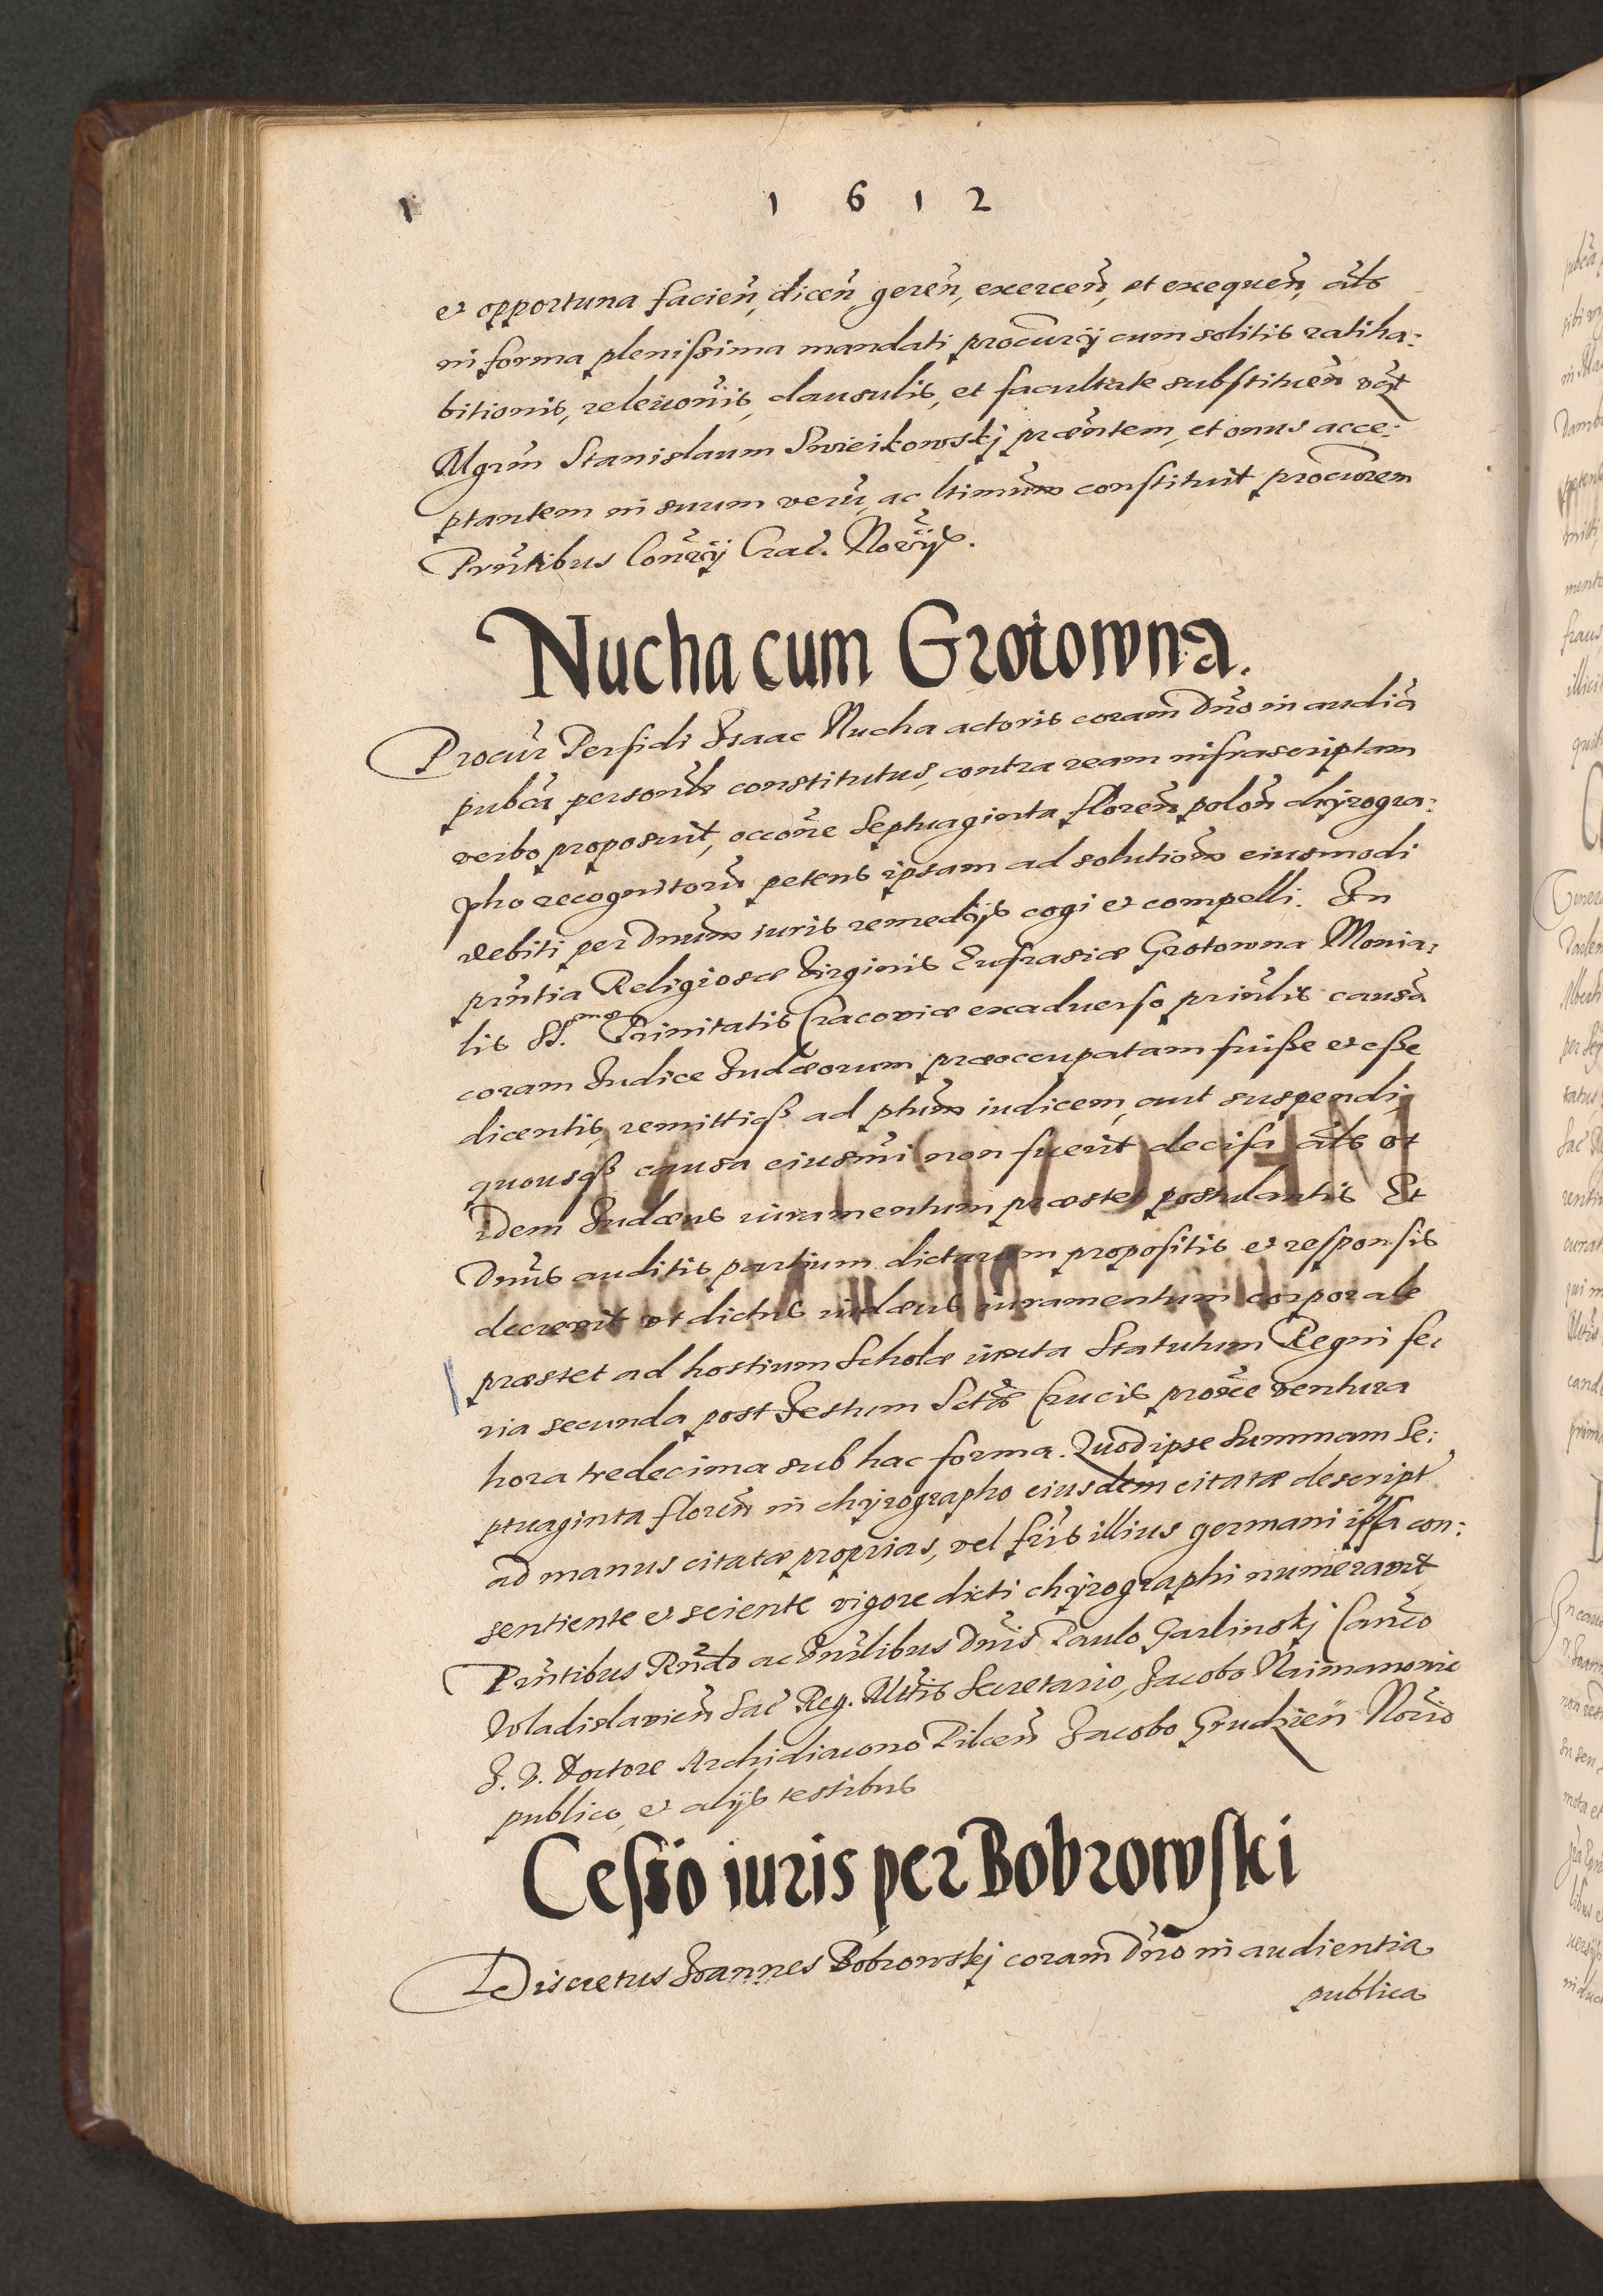 1 6 1 2
et opportuna facieñ, diceñ, gereñ, exerceñ, et exequeñ, als̃
in forma plenissima mandati procur̃ij cum solitis ratiha:
bitionis, relevõnis, clausulis, et facultate substitueñ
Mgrm̃ Stanislaum Swieikowskj præñtem, et onus acce:
ptantem in suum verũ, ac ltimum̃ constituit procur̃em
Prñtibus Cons̃rij Crac̃. Nor̃ijs.
Nucha cum Grotowna.
Procur̃ Perfidi Isaac Nucha actoris coram Dño in audiã
pubca personlr̃ constitutus, contra ream infrascriptam
verbo proposuit, occõne Septuaginta floreñ poloñ chyrogra:
pho recognitorũ petens ipsam ad solutiõem eiusmodi
debiti per Dnum̃ iuris remedijs cogi et compelli. In
prñtia Religiosæ Virginis Eufrasiæ Grotowna Monia:
lis SS.mæ Trinitatis Cracoviæ exadverso prinlis̃ causã
coram Iudice Iudæorum præoccupatam fuisse et esse
dicentis, remittiq3 ad ptum̃ iudicem, aut suspendi,
quousq3 causa eiusmi̇̃ non fuerit decisa als̃ ut
idem Iudæus iuramentum præstet postulantis Et
Dnus̃ auditis partium dictarum propositis et responsis
decrevit ut dictus iudæus iuramentum corporale
præstet ad hostium Scholæ iuxta Statutum Regni fe:
ria secunda post Festum Sctæ̃ Crucis proxe̅ ventura
hora tredecima sub hac forma. Quod ipse Summam Se:
ptuaginta floreñ in chyrographo eiusdem citatæ descript̃
ad manus citatæ proprias, vel fris̃ illius germani ipsa con:
sentiente et sciente vigore dicti chyrographi numeravit
Prñtibus Rndo̅ ac Vnr̃libus Dnis̃ Paulo Garlinskj Canco̅
Wladislavieñ Sac̃ Reg. Mtis̃ Secretario, Jacobo Naimanowic
J. V. Doctore Archidiacono Pilceñ Jacobo Grudzień Norio̅
publico, et alijs testibus
Cessio iuris per Bobrowski
Discretus Joannes Bobrowskj coram Dño in audientia
publica